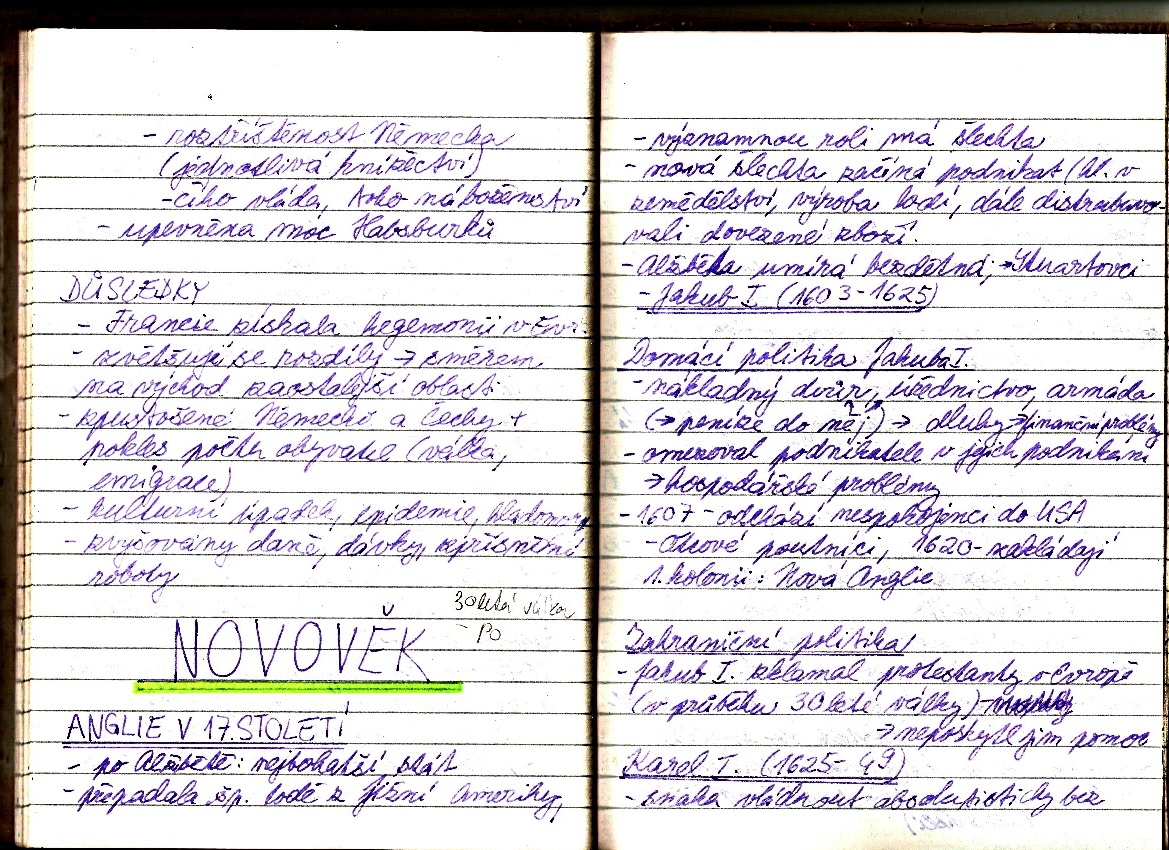 - roztříštěnost Německa
(jednotlivá knížectví)
- čího vláda, toho náboženství
- upevněna moc Habsburků
DŮSLEDKY
- Francie získala hegemonii v Evr.
- zvětšují se rozdíly → směrem
na východ zaostalejší oblasti
- zpustošené Německo a Čechy +
pokles počtu obyvatel (válka,
emigrace)
- kulturní úpadek, epidemie, hladomory
- zvyšovány daně, dávky, zpřísnění
roboty
30letá válka
- Po
NOVOVĚK
ANGLIE V 17. STOLETÍ
- po Alžbětě: nejbohatší stát
- přepadala šp. lodě z jižní Ameriky,
- významnou roli má šlechta
- nová šlechta začíná podnikat (hl. v
zemědělství, výroba lodí, dále distribuo-
vali dovezené zboží.
- Alžběta umírá bezdětná, → Stuartovci
- Jakub I. (1603-1625)
Domácí politika Jakuba I.
- nákladný dvůr, úřednictvo, armáda
(→ peníze do něj) → dluhy → finanční problémy
- omezoval podnikatele v jejich podnikání
→ hospodářské problémy
- 1607 - odchází nespokojenci do USA
- Otcové poutníci, 1620 - zakládají
1. kolonii: Nová Anglie
Zahraniční politika
- Jakub I. zklamal protestanty v Evropě
(v průběhu 30leté války)
→ neposkytl jim pomoc
Karel I. (1625-49)
- snaha vládnout absolutisticky bez